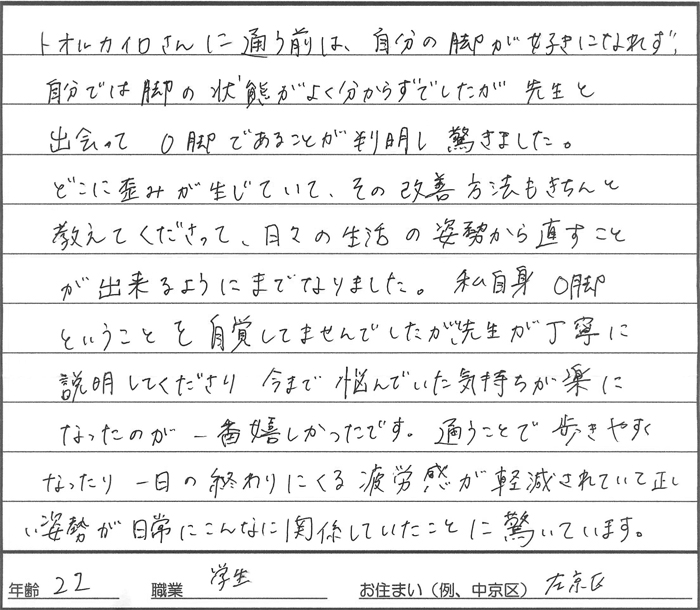 トオルカイロさんに通う前は、自分の脚が好きになれず、
自分では脚の状態がよく分からずでしたが 先生と
出会って O脚であることが判明し 驚きました。
どこに歪みが生じていて、その改善方法もきちんと
教えてくださって、日々の生活の姿勢から直すこと
が出来るようにまでなりました。 私自身 O脚
ということを自覚してませんでしたが、先生が丁寧に
説明してくださり 今まで悩んでいた気持ちが楽に
なったのが一番嬉しかったです。 通うことで歩きやすく
なったり 一日の終わりにくる疲労感が軽減されていて正し
い姿勢が日常にこんなに関係していたことに驚いています。
年齢 22 職業 学生 お住まい(例、中京区) 左京区